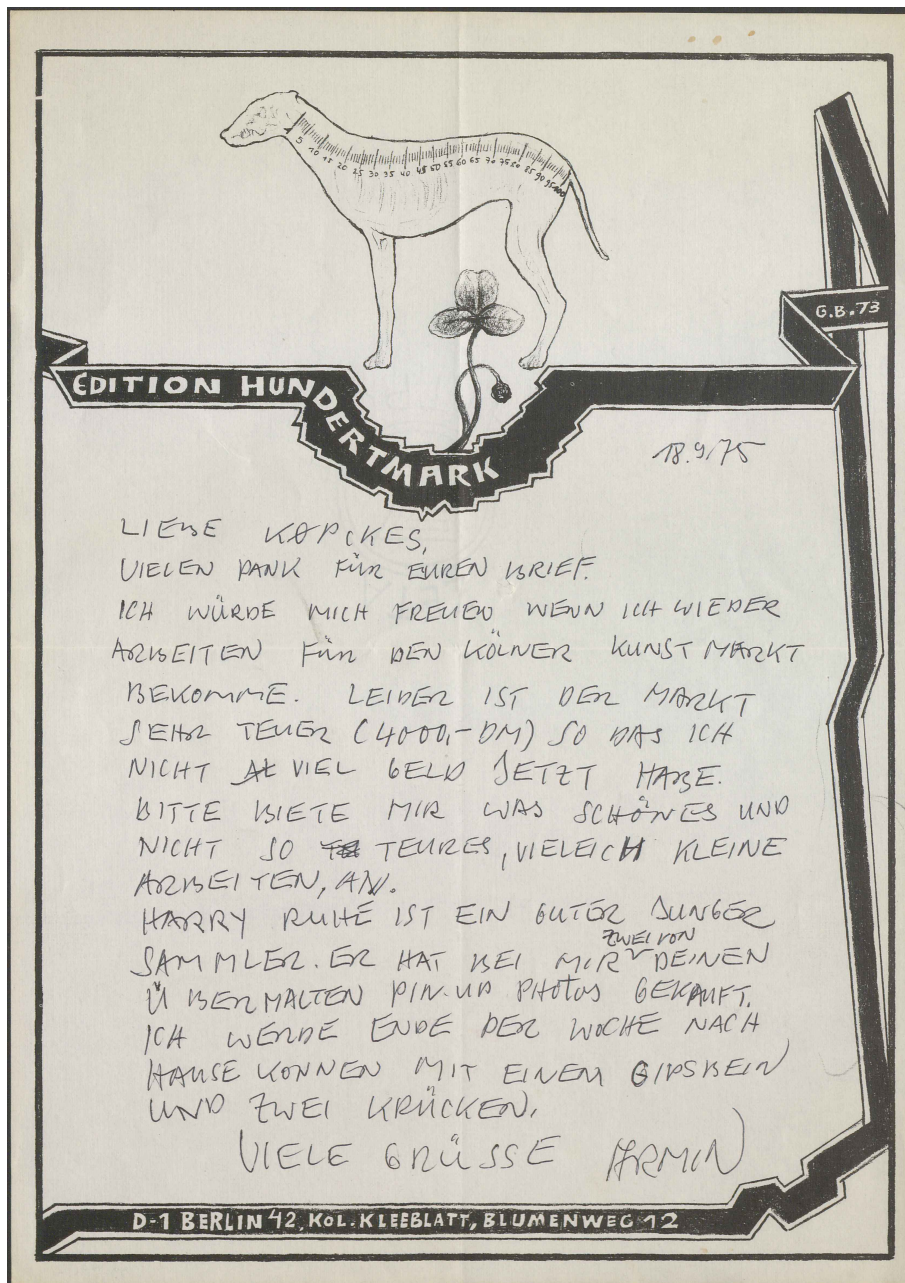 5 10 15 20 25 30 35 40 45 50 55 60 65 70 75 80 85 90 95 100
G.B.73
EDITION HUNDERTMARK
18.9.75
LIEBE KØPCKES,
VIELEN DANK FÜR EUREN BRIEF.
ICH WÜRDE MICH FREUEN WENN ICH WIEDER
ARBEITEN FÜR DEN KÖLNER KUNST MARKT
BEKOMME. LEIDER IST DER MARKT
SEHR TEUER (4000,- DM) SO DAS ICH
NICHT VIEL GELD JETZT HABE.
BITTE BIETE MIR WAS SCHÖNES UND
NICHT SO TEURES, VIELEICH KLEINE
ARBEITEN, AN.
HARRY RUHÉ IST EIN GUTER JUNGER
SAMMLER. ER HAT BEI MIR ZWEI VON DEINEN
ÜBERMALTEN PIN-UP PHOTOS GEKAUFT.
ICH WERDE ENDE DER WOCHE NACH
HAUSE KONNEN MIT EINEM GIPSBEIN
UND ZWEI KRÜCKEN.
VIELE GRÜSSE ARMIN
D-1 BERLIN 42, KOL. KLEEBLATT, BLUMENWEG 12